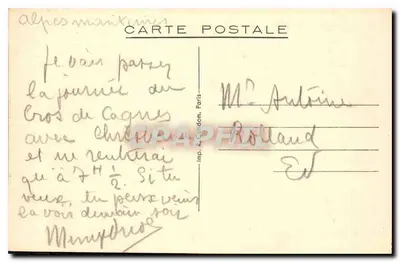 alpes maritimes
CARTE POSTALE
Je vais passer
la journée du
Cros de Cagnes
avec
et ne rentrerai
qu'à 7H 1/2. Si tu
veux, tu peux venir
la voir demain soir
Mr Antoine
Rolland
Ev
Paris